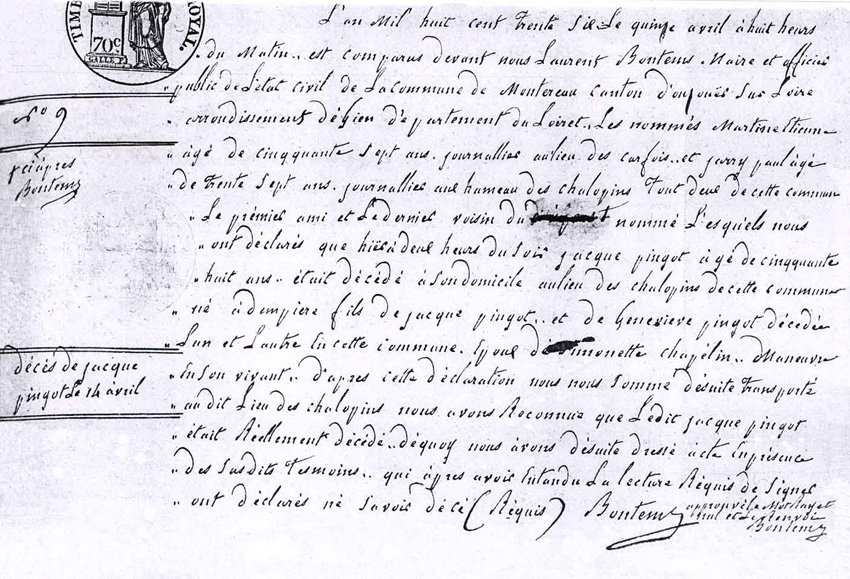 TIMB ROYAL.
70c
GALLE F.
L'an Mil huit cent trente six Le quinze avril à huit heurs
du Matin.. est comparus devant nous Laurent Bontems Maire et officier
public de L'état Civil de La Commune de Montereau Canton d'ouzouér sur Loire
arrondissement dé Gien département du Loiret.. Les nommés Martin Etienne
âgé de cinqquante sept ans. journallier au lieu des carfois.. et jarry paul âgé
de trente sept ans. journallier aux hameau des chalopins tout deux de cette commun
Le prémier ami et Le dernier voisin du nommé Lesquels nous
ont déclarés que hièr à deux heurs du soir jacque pingot âgé de cinqquante
huit ans.. était décédé à son domicile au lieu des chalopins de cette commune
né à dempiere fils de jacque pingot.. et de Genevieve pingot décédée
L'un et L'autre En cette commune. Epoux de simonette chapelin.. Maneuvre
En son vivant.. d'apres cette déclaration nous nous somme désuite transporté
audit Lieu des chalopins nous avons Reconnue que Ledit jacque pingot
était Réellement décédé.. déquoy nous avons désuite dressé acte En présence
des susdits tesmoins.. qui âpres avoir Entandu La lecture Réquis de Signer
ont déclarés né savoir dé cé (Réquis) Bontems
approuvé Le Mot Rayet
nul et Le Renvoi
Bontems
No 9
Bontems
décés de jacque
pingot Le 14 avril